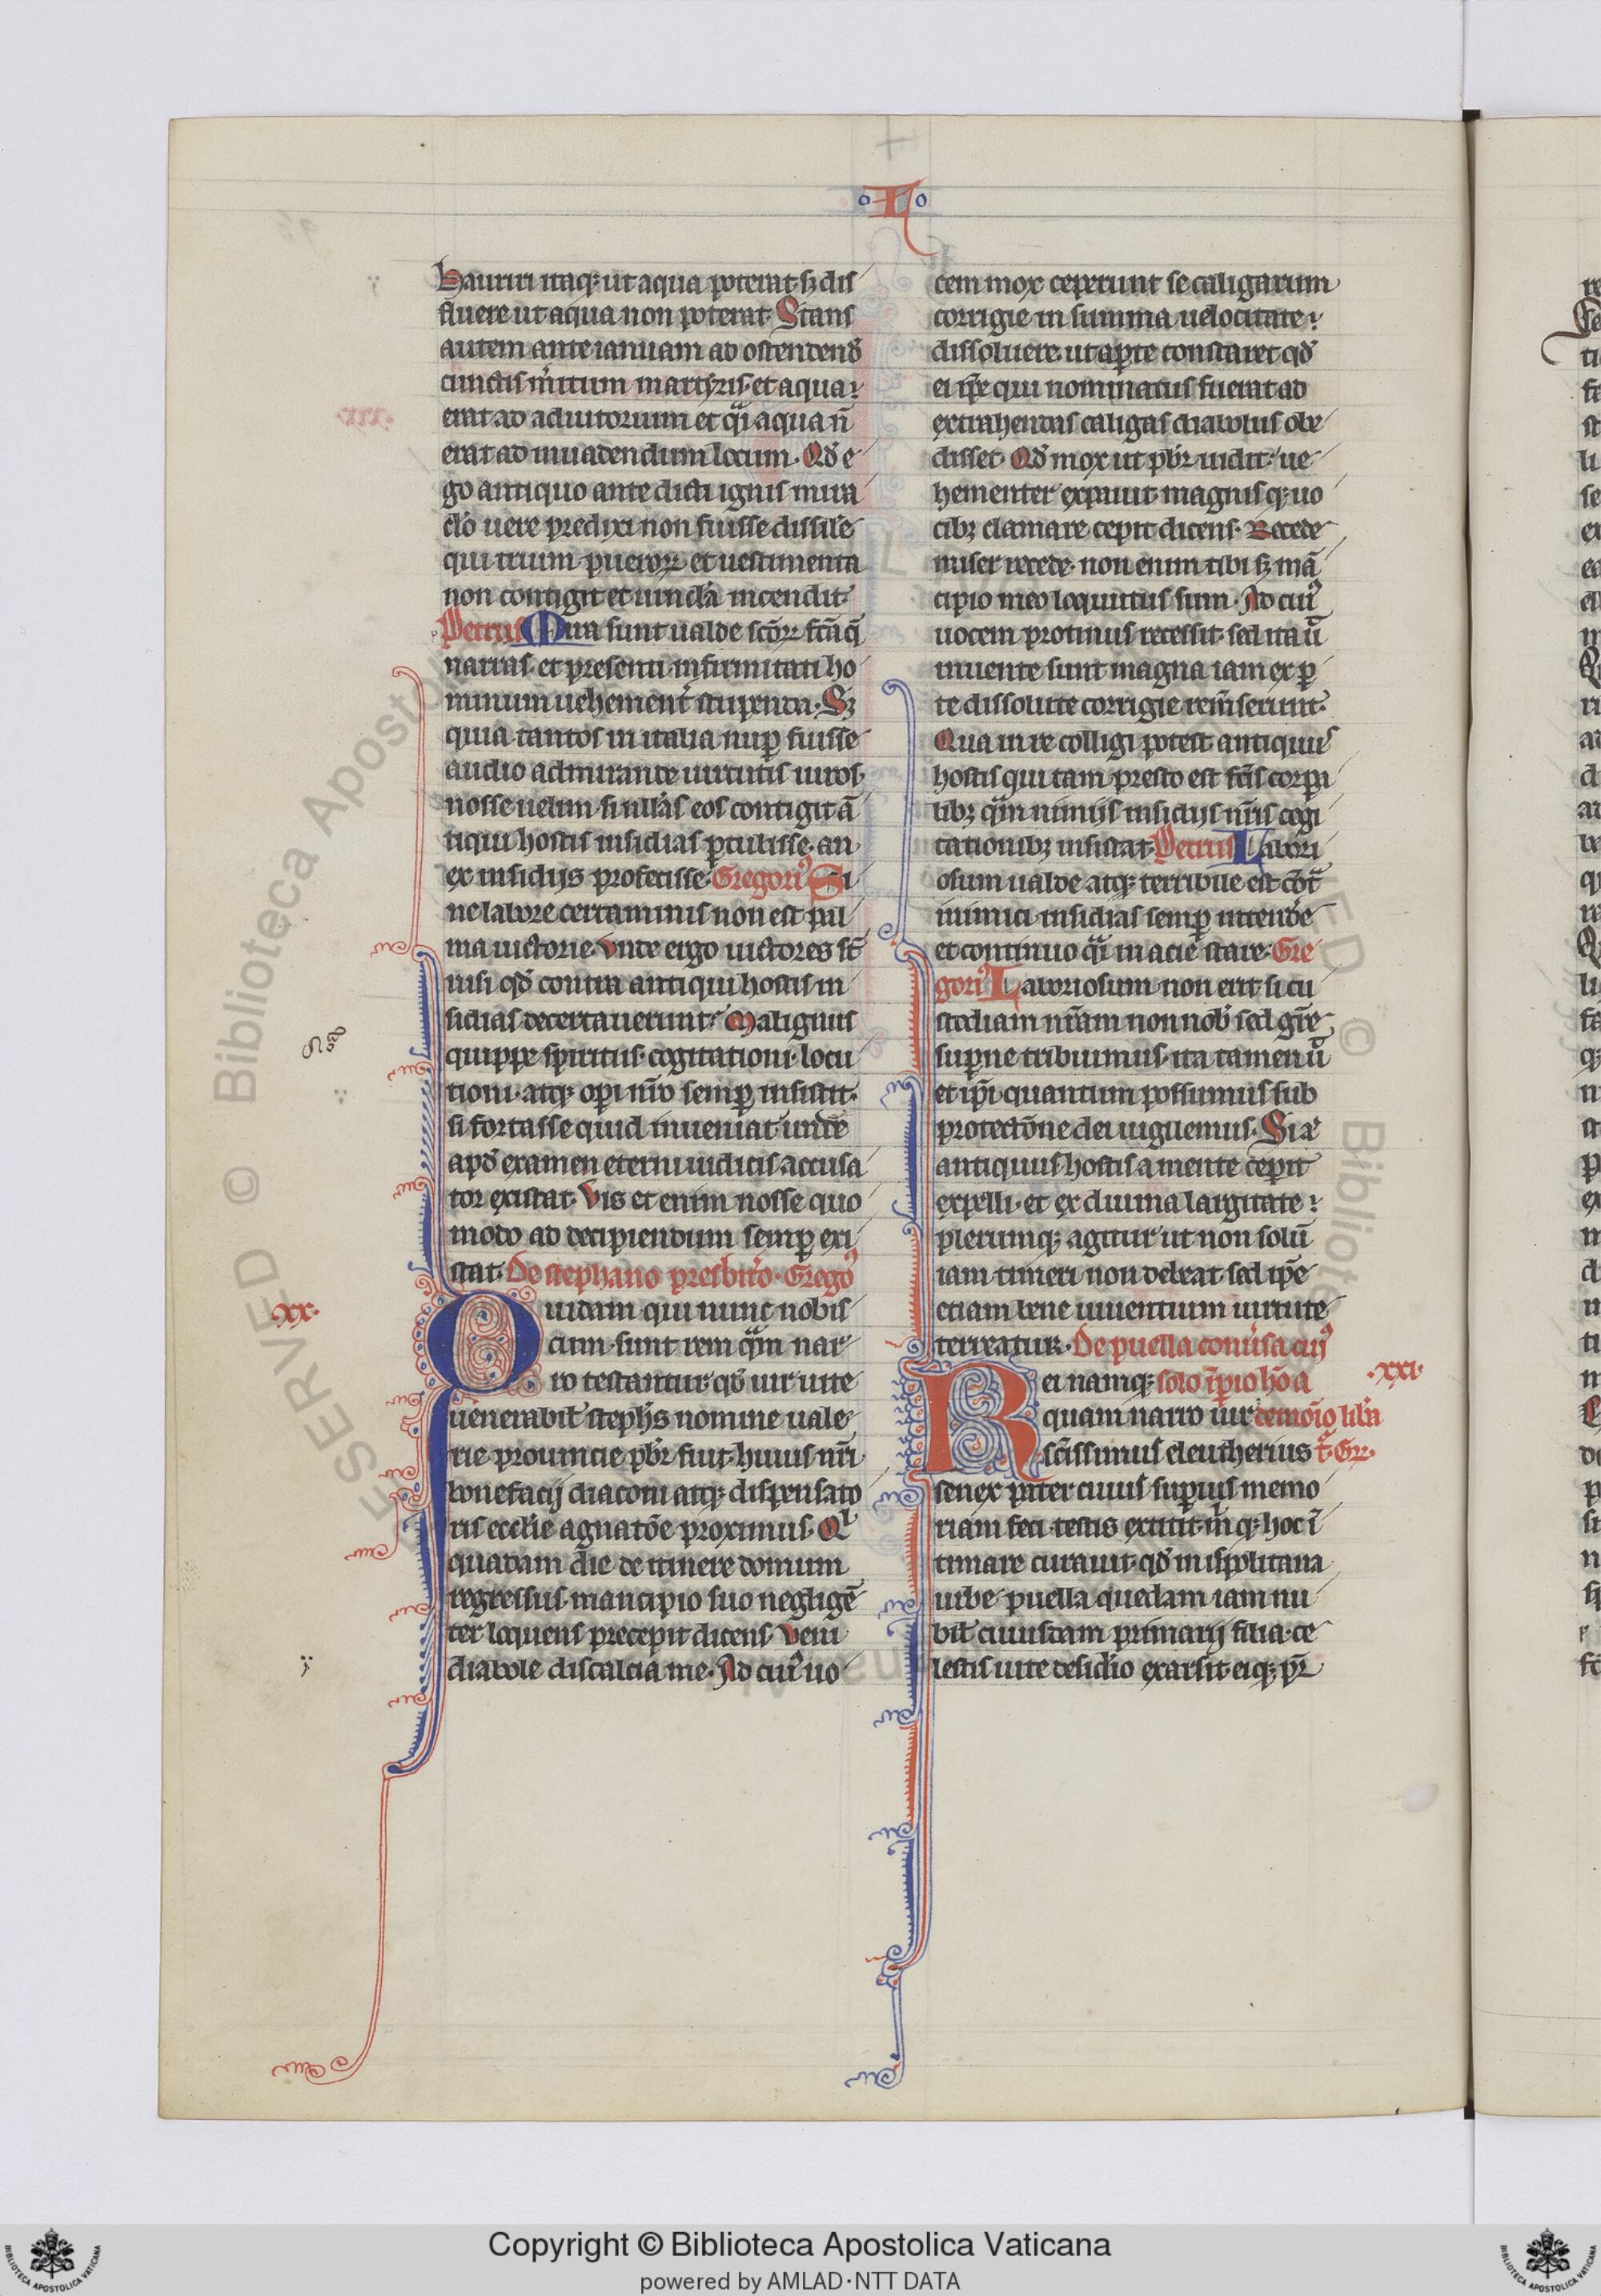 L
hauriri itaqꝫ ut aqua poterat. sꝫ dis
fluere ut aqua non poterat. Stans
autem ante ianuam ad ostendend̄
cunctis m̄itum martyris. et aqua
erat ad adiutorium et q̄i aqua ñ
erat ad inuadendum locum. Qd̄ e
go antiquo ante dicti ignis mira
cl̓o uere predixi non fuisse dissil̓e
qui trium pueroꝝ et uestimenta
non contigit et uincl̓a incendit.
Petrus Mira sunt ualde sc̄oꝝ fc̄a q̄
narras. et presenti infirmitati ho
minum uehement̓ stupenda. Sꝫ
quia tantos in italia nuꝑ fuisse
audio admirande uirtutis uiros.
nosse uelim si null̓as eos contigit ā
tiqui hostis insidias ꝑtulisse. an
ex insidijs profecisse. Gregori᷒ Si
ne labore certaminis non est pal
ma uictorie. Vnde ergo uictores st̄
nisi qd̓ contra antiqui hostis in
sidias decertauerunt. Malignus
quippe spiritus. cogitationi. locu
tioni. atqꝫ oꝑi nr̄o semꝑ insistit.
si fortasse quid inueniat unde
apd̓ examen eterni iudicis accusa
tor existat. Vis et enim nosse quo
modo ad decipiendum semꝑ exi
stat. De stephano presbit̓o. Grego᷒
xx.
Quidam qui nunc nobis
cum sunt rem qᷓm nar
ro testantur. qd̓ uir uite
uenerabil̓ steph̓s nomine uale
rie prouincie pb̄r fuit. huius nr̄i
bonefacij diaconi atqꝫ dispensato
ris eccl̓ie agnatōe proximus. Q̇
quadam die de itinere domum
regressus. mancipio suo negligē
ter loquens precepit dicens. Veni
diabole discalcia me. Ad cui᷒ uo
cem mox ceperunt se caligarum
corrigie in summa uelocitate
dissoluere. ut aꝑte constaret qd̓
ei ip̄e qui nominatus fuerat ad
extrahendas caligas diabolus obe
disset. Qd̓ mox ut pb̄r uidit. ue
hementer expauit. magnis qꝫ uo
cibꝫ clamare cepit dicens. Recede
miser recede. non enim tibi sꝫ mā
cipio meo loquutus sum. Ad cui᷒
uocem protinus recessit. sed ita ū
inuente sunt magna iam ex ꝑ
te dissolute corrigie reman̄serunt.
Qua in re colligi potest antiquus
hostis qui tam presto est fc̄is corꝑa
libꝫ. qᷓm nimijs insidijs nr̄is cogi
tationibꝫ insistat. Petrus Labori
osum ualde atqꝫ terribile est cōt̄
inimici insidias semꝑ intend̓e
et continuo q̄i in acie stare. Gre
gori᷒ Laboriosum non erit si cu
stodiam nr̄am non nob̓ sed gr̄e
suꝑne tribuimus. ita tamen ū
et ip̄i quantum possumus sub
protectōne dei uigilemus. Si a
antiquus hostis a mente ceperit
expelli. et ex diuina largitate
plerumqꝫ agitur ut non solū
iam timeri non debeat. sed ip̄e
etiam bene uiuentium uirtute
terreatur. De puella conu̓sa cui᷒
xxi.
Rei namqꝫ solo īꝑio hō a
quam narro uir demoīo lib̓a
sc̄issimus eleutherius t̓. Gr̄.
senex pater cuius suꝑius memo
riam feci testis extitit. m̓ qꝫ hoc ī
timare curauit. qd̓ in spolitana
urbe puella quedam iam nu
bil̓ cuiusdam primarij filia. ce
lestis uite desid̓io exarsit. eiqꝫ pr̄